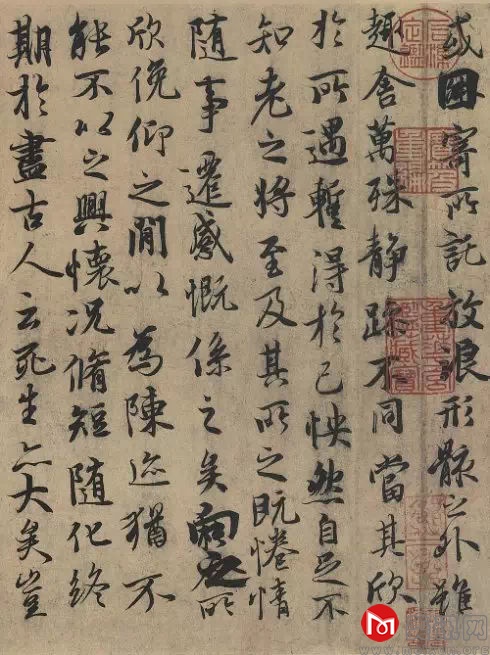 或因寄所託放浪形骸之外雖
趣舍萬殊静躁不同當其欣
於所遇暫得於己怏然自足不
知老之将至及其所之既惓情
随事遷感慨係之矣向之所
欣俛仰之閒以為陳迹猶不
能不以之興懷况脩短随化終
期於盡古人云死生亦大矣豈